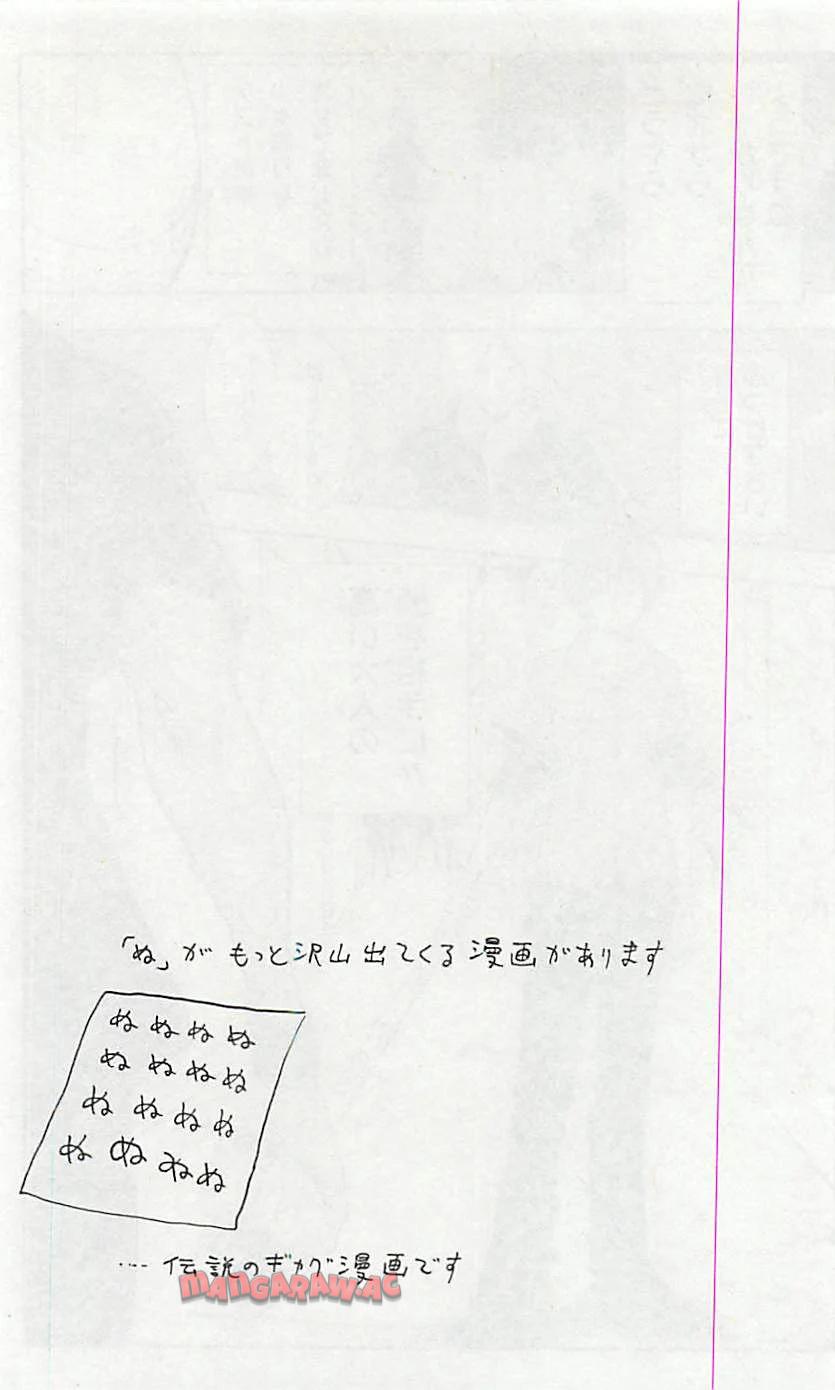 「ぬ」が もっと沢山出てくる漫画があります
ぬ ぬ ぬ ぬ
ぬ ぬ ぬ ぬ
ぬ ぬ ぬ ぬ
ぬ ぬ ぬ ぬ
…伝説のギャグ漫画です
MANGARAW.AC